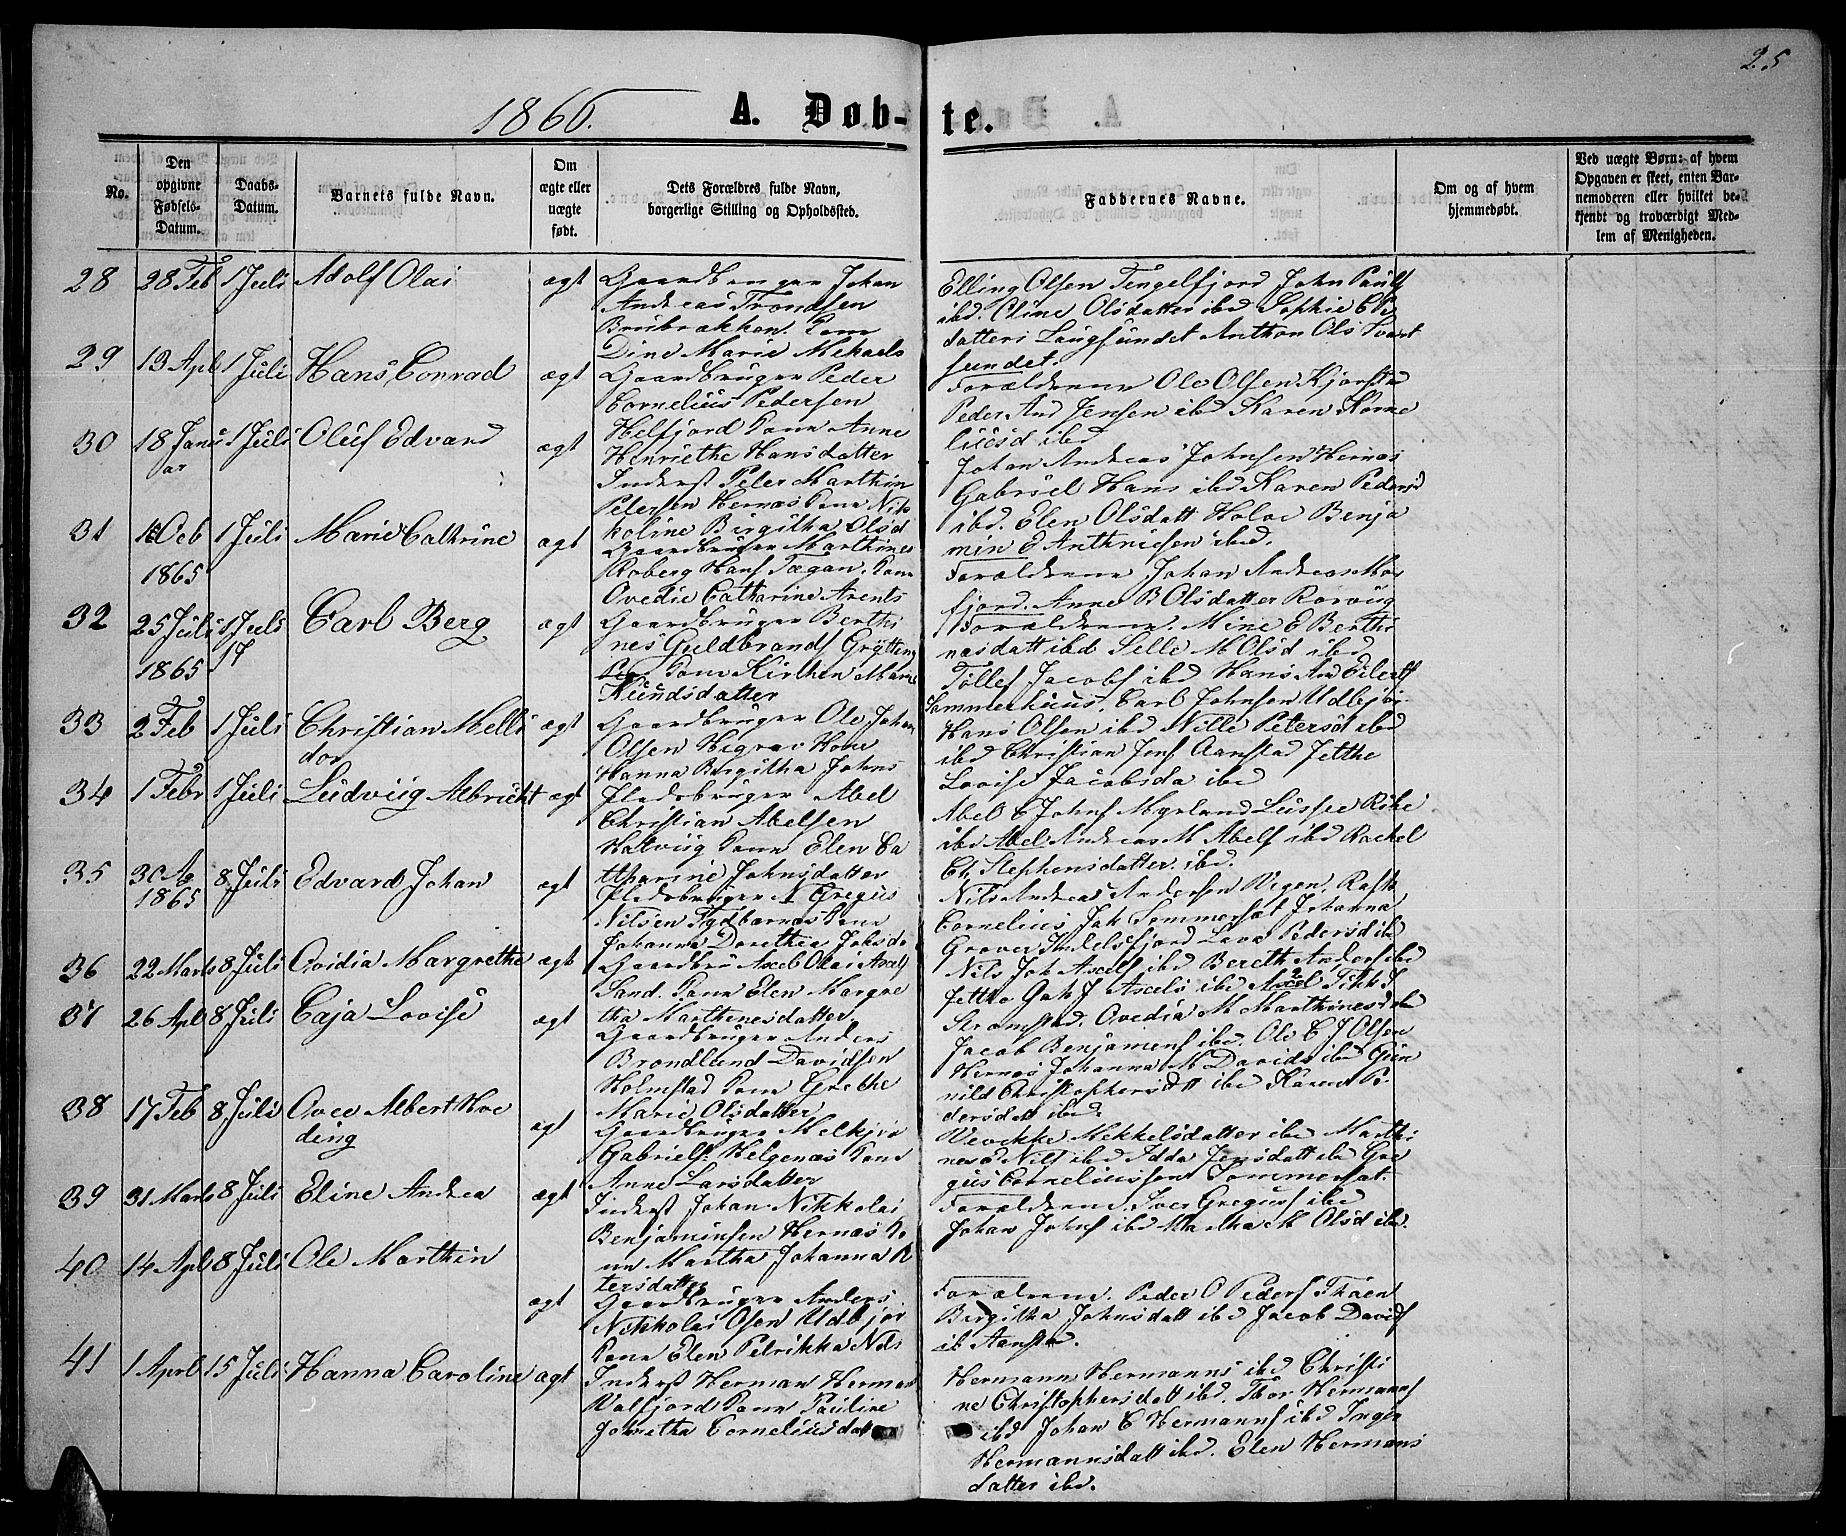 25
1866.
A. Døb-te.
No.
Den opgivne Fødsels-Datum.
Daabs-Datum.
Barnets fulde Navn.
Om ægte eller uægte født.
Dets Forældres fulde Navn, borgerlige Stilling og Opholdssted.
Faddernes Navne.
Om og af hvem hjemmedøbt.
Ved uægte Børn: af hvem Opgaven er skeet, enten Barnemoderen eller hvilket bekjendt og troværdigt Medlem af Menigheden.
28 28 Feb 1 Juli Adolf Olai ægt
Gaardbruger Johan
Andreas Trondsen
Brubrækken. Kone
Dine Marie Mekaels
Elling Olsen Tengelfjord John Pauls
ibd. Eline Olsdatter ibd Sophie
datter Langsundet Anthon Ols
sundet.
29 13 Apl 1 Juli Hans Conrad ægt
Gaardbruger Peder
Cornelius Pedersen
Helfjord Kone Anne
Henriethe Hansdatter
Forældrene Ole Olsen Kjorstad
Peder And Jensen ibd Karen Korne
liusd ibd
30 18 Janu
ar 1 Juli Oluf Edvard ægt
Inderst Peter Marthin
Petersen Hernæs Kone Nik
koline Birgitha Olsd
Johan Andreas Johnsen Hernæs
Gabriel Hans ibd Karen Pedersd
ibd. Elen Olsdatt Holde Benja
min E Anthnisen ibd.
31 10 Ocb
1865 1 Juli Marie Cathrine ægt
Gaardbruger Marthines
Roberg Hans Tægan. Kone
Ovedie Catharine Arents
Forældrene Johan Andreas Mos
fjord. Anne B Olsdatter Rorvig
32 25 Juli
1865 1 Juli
17 Carl Berg ægt
Gaardbruger Berthi
nes Guldbrands Grytting
Kone Kirsten Marie
Knudsdatter
Forældrene. Mine E Berthi
nesdatt ibd Sille M Olsd ibd
Tollef Jacobs ibd Hans And Eilerts
Sommerhuus. Carl Johnsen Udbjør
33 2 Feb 1 Juli Christian Melki
dor ægt
Gaardbruger Ole Johan
Olsen Higrav Kone
Hanna Birgitha Johns
Hans Olsen ibd Nille Petersd ibd
ibd Christian Jens Aanstad Jetthe
Lovise Jacobsda ibd
34 1 Febr 1 Juli Ludvig Albricht ægt
Pladsbruger Abel
Christian Abelsen
Hatvig Kone Elen Ca
tharine Johnsdatter
Abel C Johns Myrland
ibd Abel Andreas M Abels ibd Rachel
Ch Stephensdatter ibd.
35 30 Ap
1865 8 Juli Edvard Johan ægt
Pladsbruger N Gregus
Nilsen Kone
Johanna Dorethea Johsda
Nils Andreas Andersen Vigen.
Cornelius Joh Sommersæt Johanna
Grover Indelsfjord Lava Pedersd ibd
36 22 Marts 8 Juli Ovidia Margrethe ægt
Gaardbru Axcel Olai Axcels
Sand. Kone Elen Margre
tha Marthinesdatter
Nils Joh Axcels ibd Bereth Anders ibd
Jetthe Axcels ibd Axcel
Stromstad. Ovedia M Marthinesd ibd
37 26 Apl 8 Juli Caja Lovise ægt
Gaardbruger Anders
Brondlund Davidsen
Holmstad Kone Grethe
Marie Olsdatter
Jacob Benjamens ibd. Ole C J Olsen
Hernæs Johanna M Davids ibd Gun
nild Christophersdatt ibd Karen Pe
dersdatt ibd.
38 17 Feb 8 Juli Ovee Albert Hve
ding ægt
Gaardbruger Melkjor
Gabriels: Helgenæs Kone
Anne Larsdatter
Vevekke Mekkelsdatter ibd Marthi
nesd Nils ibd Idda Jensdatt ibd Gre
gus Corneliussen Sommersæt.
39 31 Marts 8 Juli Eline Andrea ægt
Inderst Johan Nikkolai
Benjaminsen Hernæs Ko
ne Martha Johanna Pe
tersdatter
Forældrene. Iver Gregus ibd
Johan Johns ibd Martha M Olsd ibd.
40 14 Apl 8 Juli Ole Marthin ægt
Gaardbruger Anders
Nikkolai Olsen Udbjør
Kone Elen Petrikka Nils
Forældrene. Peder O Peders Thoen
Birgitha Johnsdatt ibd Jacob Davids
Aanstad.
41 1 Aprl 15 Juli Hanna Caroline ægt
Inderst Herman Herman
Valfjord Kone Pauline
Jonetha Corneliusdatt
Hermann Hermanns ibd Christi
ne Christophersdatt ibd. Thor Hermanns
ibd Johan C Hermanns ibd Inger
Hermannsdatt ibd. Elen Hermans
datter ibd.